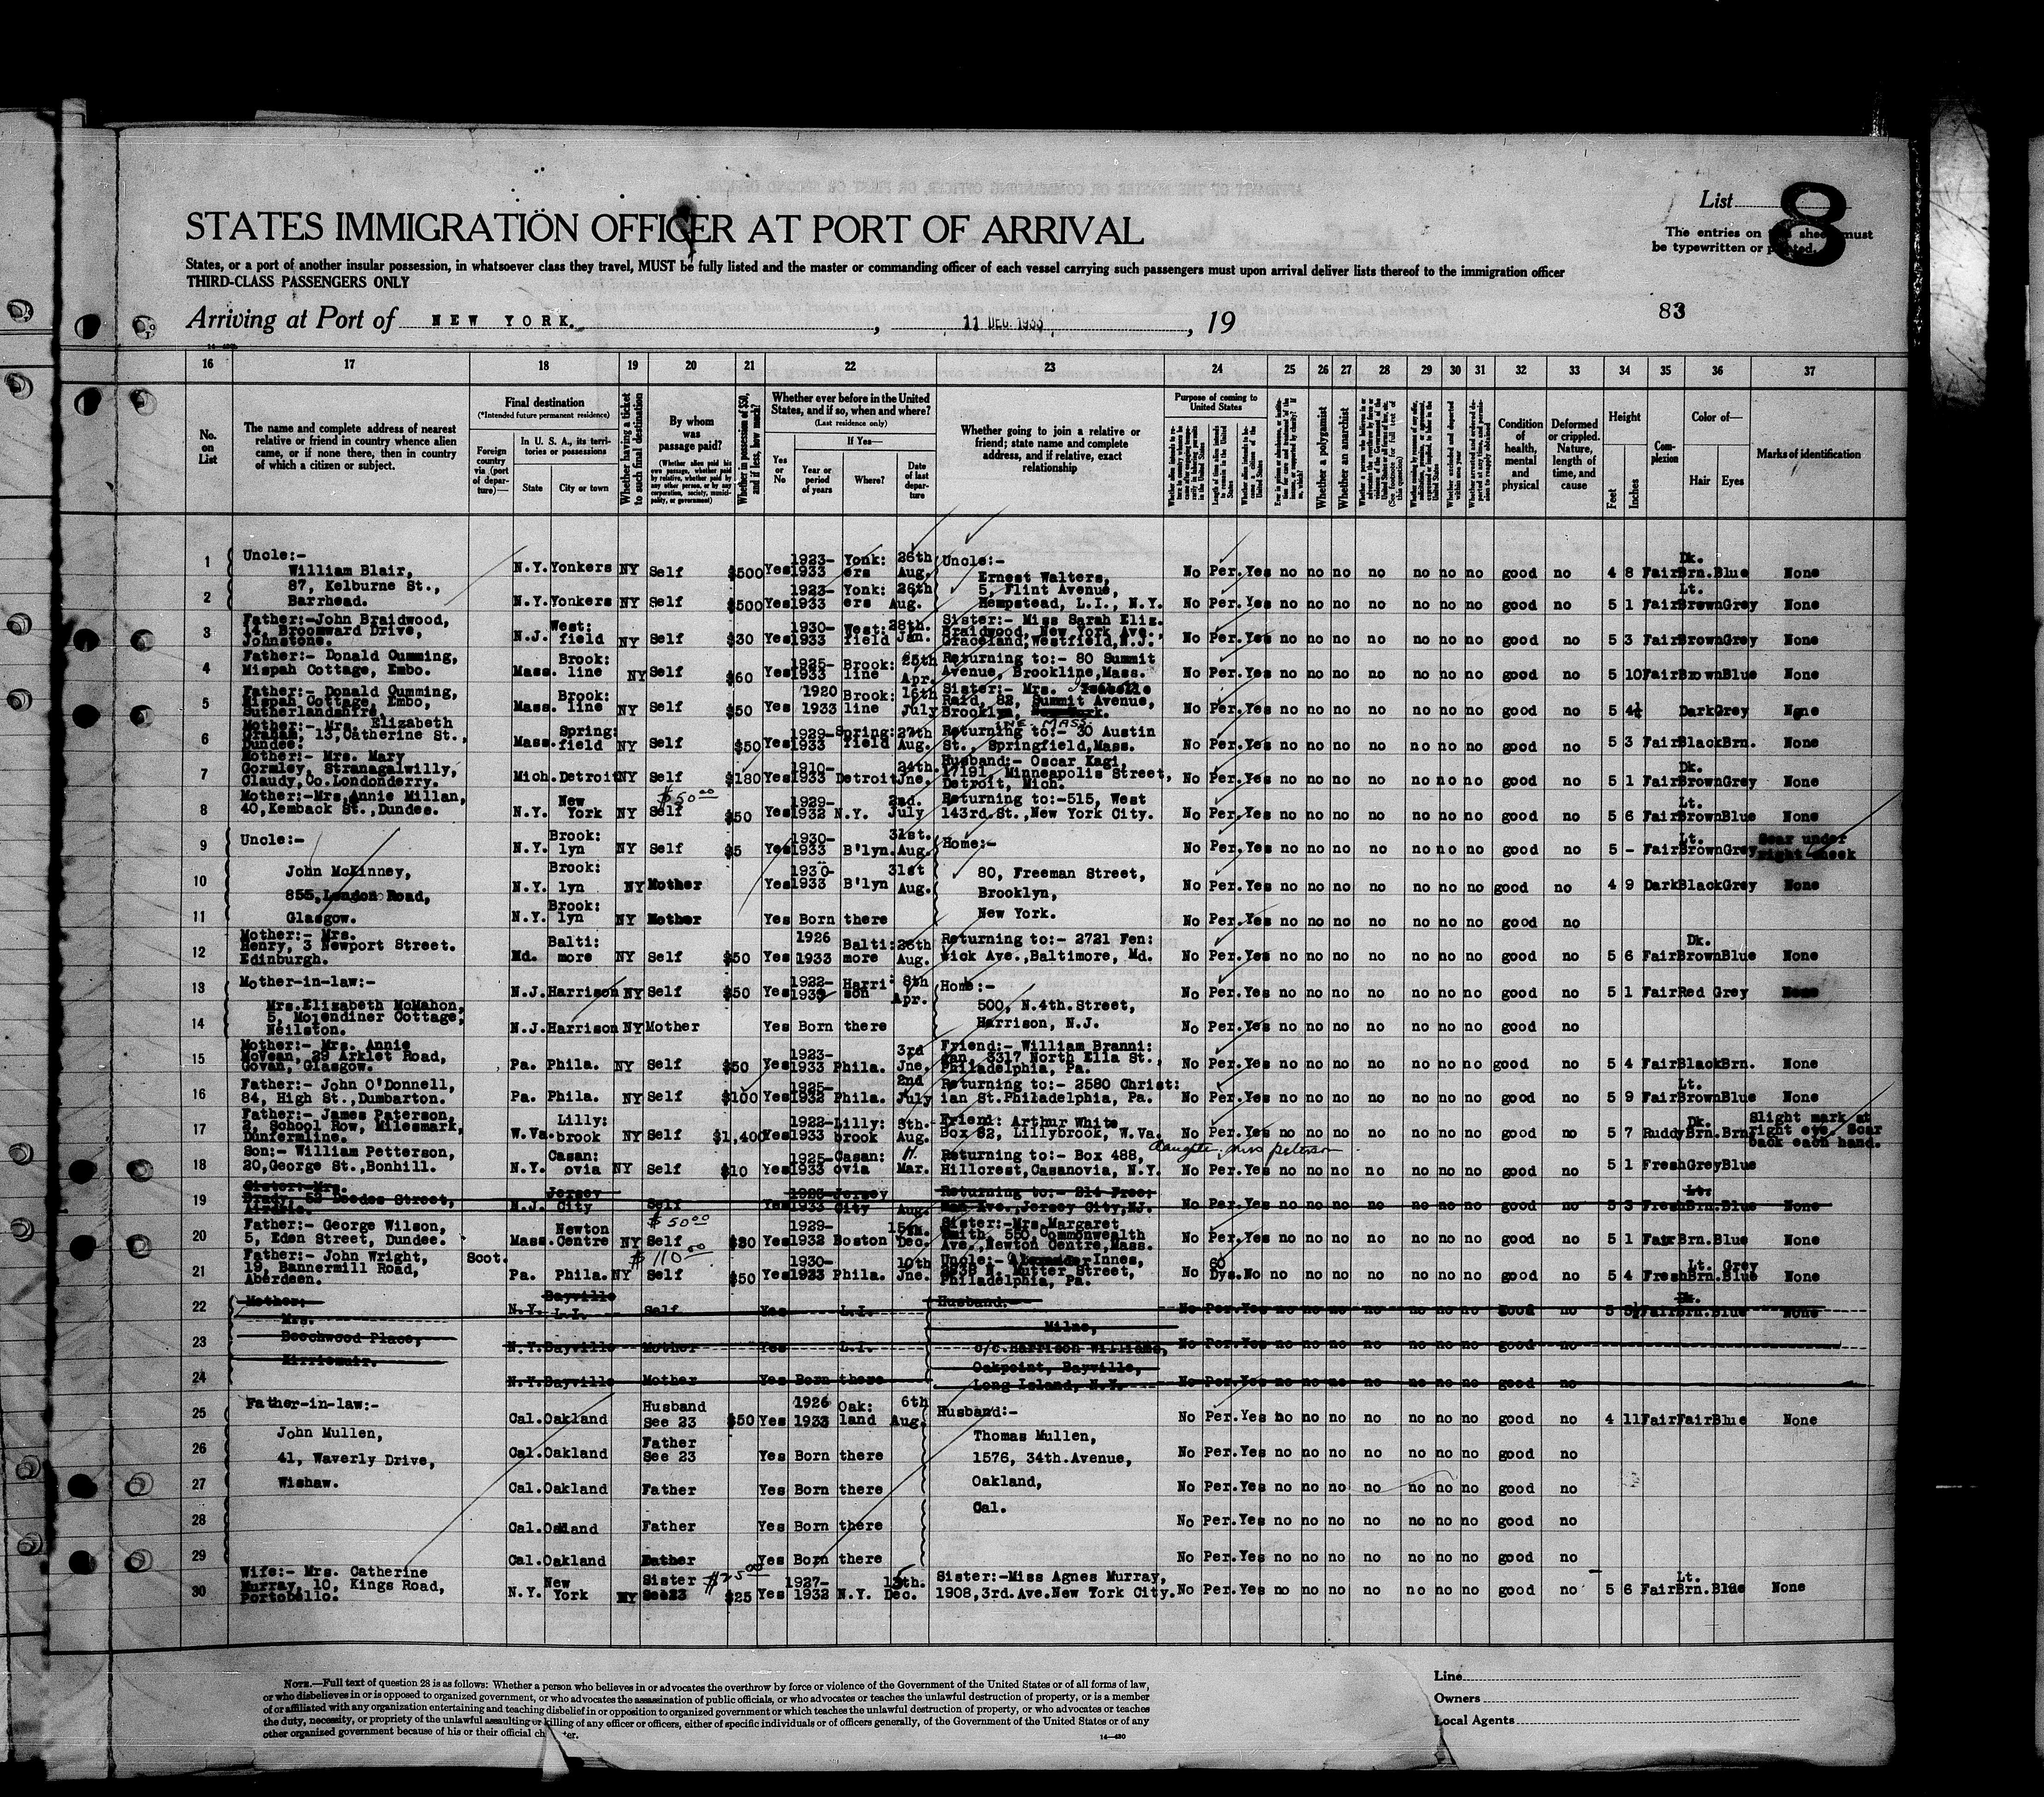 List 8
The entries on this sheet must
be typewritten or printed.
STATES IMMIGRATION OFFICER AT PORT OF ARRIVAL
States, or a port of another insular possession, in whatsoever class they travel, MUST be fully listed and the master or commanding officer of each vessel carrying such passengers must upon arrival deliver lists thereof to the immigration officer
THIRD-CLASS PASSENGERS ONLY
Arriving at Port of NEW YORK. , 11 DEC 1933 , 19
83
16 17 18 19 20 21 22 23 24 25 26 27 28 29 30 31 32 33 34 35 36 37
No. on List
The name and complete address of nearest
relative or friend in country whence alien
came, or if none there, then in country
of which a citizen or subject.
Final destination
(*Intended future permanent residence)
Foreign country via (port of departure)—
In U. S. A., its territories or possessions
State City or town
Whether having a ticket to such final destination
By whom was passage paid?
(Whether alien paid his own passage, whether paid by relative, whether paid by any other person, or by any corporation, society, municipality, or government)
Whether in possession of $50, and if less, how much?
Whether ever before in the United States, and if so, when and where?
(Last residence only)
Yes or No
If Yes—
Year or period of years
Where?
Date of last departure
Whether going to join a relative or
friend; state name and complete
address, and if relative, exact
relationship
Purpose of coming to United States
Whether a polygamist
Whether an anarchist
Condition of health, mental and physical
Deformed or crippled. Nature, length of time, and cause
Height
Feet Inches
Complexion
Color of—
Hair Eyes
Marks of identification
1 Uncle:- William Blair, N.Y. Yonkers NY Self $500 Yes 1923-1933 Yonk:ers 26th Aug. Uncle:- Ernest Walters, No Per. Yes no no no no no no no good no 4 8 Fair Dk. Brn. Blue None
2 87, Kelburne St., Barrhead. N.Y. Yonkers NY Self $500 Yes 1923-1933 Yonk:ers 26th Aug. 5, Flint Avenue, Hempstead, L.I., N.Y. No Per. Yes no no no no no no no good no 5 1 Fair Lt. Brown Grey None
3 Father:-John Braidwood, 14, Broomward Drive, Johnstone. N.J. West:field NY Self $30 Yes 1930-1933 West:field 28th. Jan. Sister:- Miss Sarah Eliz. Braidwood, New York Ave., Graceland, Westfield, N.J. No Per. Yes no no no no no no no good no 5 3 Fair Brown Grey None
4 Father:- Donald Cumming, Mispah Cottage, Embo. Mass. Brook:line NY Self $60 Yes 1925-1933 Brook:line 25th Apr. Returning to:- 80 Summit Avenue, Brookline, Mass. No Per. Yes no no no no no no no good no 5 10 Fair Brown Blue None
5 Father:- Donald Cumming, Mispah Cottage, Embo, Sutherlandshire. Mass. Brook:line NY Self $50 Yes 1920 1933 Brook:line 16th July Sister:- Mrs. Isabelle Raid, 82, Summit Avenue, Brooklyn, INE. MASS. No Per. Yes no no no no no no no good no 5 4½ Dark Grey None
6 Mother:- Mrs. Elizabeth Graham, 13, Catherine St., Dundee. Mass. Spring:field NY Self $50 Yes 1929-1933 Spring:field 27th Aug. Returning to:- 30 Austin St., Springfield, Mass. No Per. Yes no no no no no no no good no 5 3 Fair Black Brn. None
7 Mother:- Mrs. Mary Gormley, Stranagalwilly, Claudy, Co. Londonderry. Mich. Detroit NY Self $180 Yes 1910-1933 Detroit 24th. Jne. Husband:- Oscar Kagi, 17191, Minneapolis Street, Detroit, Mich. No Per. Yes no no no no no no no good no 5 1 Fair Dk. Brown Grey None
8 Mother:-Mrs. Annie Millan, 40, Kemback St., Dundee. N.Y. New York NY $50.00 Self $50 Yes 1929-1932 N.Y. 2nd. July Returning to:-515, West 143rd. St., New York City. No Per. Yes no no no no no no no good no 5 6 Fair Lt. Brown Blue None
9 Uncle:- N.Y. Brook:lyn NY Self $5 Yes 1930-1933 B'lyn. 31st. Aug. Home:- No Per. Yes no no no no no no no good no 5 - Fair Lt. Brown Grey Scar under right cheek
10 John McKinney, 855, London Road, N.Y. Brook:lyn NY Mother Yes 1930-1933 B'lyn 31st Aug. 80, Freeman Street, Brooklyn, No Per. Yes no no no no no no no good no 4 9 Dark Black Grey None
11 Glasgow. N.Y. Brook:lyn NY Mother Yes Born there New York. No Per. Yes no no no no no no no good no
12 Mother:- Mrs. Henry, 3 Newport Street. Edinburgh. Md. Balti:more NY Self $50 Yes 1926 1933 Balti:more 26th Aug. Returning to:- 2721 Fen:wick Ave., Baltimore, Md. No Per. Yes no no no no no no no good no 5 6 Fair Dk. Brown Blue None
13 Mother-in-law:- N.J. Harrison NY Self $50 Yes 1922-1933 Harri:son 8th Apr. Home:- No Per. Yes no no no no no no no good no 5 1 Fair Red Grey None
14 Mrs. Elizabeth McMahon, 5, Molendiner Cottage, Neilston. N.J. Harrison NY Mother Yes Born there 500, N.4th. Street, Harrison, N.J. No Per. Yes no no no no no no no good no
15 Mother:- Mrs. Annie McVean, 29 Arklet Road, Govan, Glasgow. Pa. Phila. NY Self $50 Yes 1923-1933 Phila. 3rd Jne. Friend:- William Branni:gan, 3317 North Ella St., Philadelphia, Pa. No Per. Yes no no no no no no no good no 5 4 Fair Black Brn. None
16 Father:- John O'Donnell, 84, High St., Dumbarton. Pa. Phila. NY Self $100 Yes 1925-1932 Phila. 2nd July Returning to:- 2580 Christ:ian St. Philadelphia, Pa. No Per. Yes no no no no no no no good no 5 9 Fair Lt. Brown Blue None
17 Father:- James Paterson, 2, School Row, Milesmark, Dunfermline. W.Va. Lilly:brook NY Self $1,400 Yes 1922-1933 Lilly:brook 8th. Aug. Friend: Arthur White Box 82, Lillybrook, W.Va. No Per. Yes no no no no no no no good no 5 7 Ruddy Dk. Brn. Brn Slight mark at right eye. Scar back each hand.
18 Son:- William Petterson, 20, George St., Bonhill. N.Y. Casan:ovia NY Self $10 Yes 1925-1933 Casan:ovia 11. Mar. Returning to:- Box 488, Hillcrest, Casanovia, N.Y. daughter, Miss Peterson No Per. Yes no no no no no no no good no 5 1 Fresh Grey Blue
19 Sister:-Mrs. Brady, 52 Deedes Street, Airdrie. N.J. Jersey City Self Yes 1926-1933 Jersey City Aug. Returning to:- 214 Free:man Ave., Jersey City, NJ. No Per. Yes no no no no no no no good no 5 3 Fresh Lt. Brn. Blue None
20 Father:- George Wilson, 5, Eden Street, Dundee. Mass. Newton Centre NY $50.00 Self $30 Yes 1929-1932 Boston 15th. Dec. Sister:-Mrs. Margaret Smith, 550 Commonwealth Ave., Newton Centre, Mass. No Per. Yes no no no no no no no good no 5 1 Fair Brn. Blue None
21 Father:- John Wright, 19, Bannermill Road, Aberdeen. Scot. Pa. Phila. NY $110.00 Self $50 Yes 1930-1933 Phila. 10th Jne. Uncle:- Innes, 2938 N. Mutter Street, Philadelphia, Pa. No 60 Dys. No no no no no no no no good no 5 4 Fresh Lt. Brn. Grey Blue None
22 Mother: Mrs. N.Y. Bayville L.I. Self Yes L.I. Husband.- No Per. Yes no no no no no no no good no 5 5½ Fair Dk. Brn. Blue None
23 Beechwood Place, N.Y. Bayville Mother Yes L.I. Milne, c/o. Harrison Williams, No Per. Yes no no no no no no no good no
24 Kirriemuir. N.Y. Bayville Mother Yes Born there Oakpoint, Bayville, Long Island, N.Y. No Per. Yes no no no no no no no good no
25 Father-in-law:- Cal. Oakland Husband See 23 $50 Yes 1926 1933 Oak:land 6th Aug. Husband:- No Per. Yes no no no no no no no good no 4 11 Fair Fair Blue None
26 John Mullen, 41, Waverly Drive, Cal. Oakland Father See 23 Yes Born there Thomas Mullen, 1576, 34th. Avenue, No Per. Yes no no no no no no no good no
27 Wishaw. Cal. Oakland Father Yes Born there Oakland, No Per. Yes no no no no no no no good no
28 Cal. Oakland Father Yes Born there Cal. No Per. Yes no no no no no no no good no
29 Cal. Oakland Father Yes Born there No Per. Yes no no no no no no no good no
30 Wife:- Mrs. Catherine Murray, 10, Kings Road, Portobello. N.Y. New York NY Sister See23 $25.00 $25 Yes 1927-1932 N.Y. 13th. Dec. Sister:-Miss Agnes Murray, 1908, 3rd. Ave. New York City. No Per. Yes no no no no no no no good no 5 6 Fair Lt. Brn. Blue None
NOTE.—Full text of question 28 is as follows: Whether a person who believes in or advocates the overthrow by force or violence of the Government of the United States or of all forms of law,
or who disbelieves in or is opposed to organized government, or who advocates the assassination of public officials, or who advocates or teaches the unlawful destruction of property, or is a member
of or affiliated with any organization entertaining and teaching disbelief in or opposition to organized government or which teaches the unlawful destruction of property, or who advocates or teaches
the duty, necessity, or propriety of the unlawful assaulting or killing of any officer or officers, either of specific individuals or of officers generally, of the Government of the United States or of any
other organized government because of his or their official ch ter.
14—430
Line
Owners
Local Agents